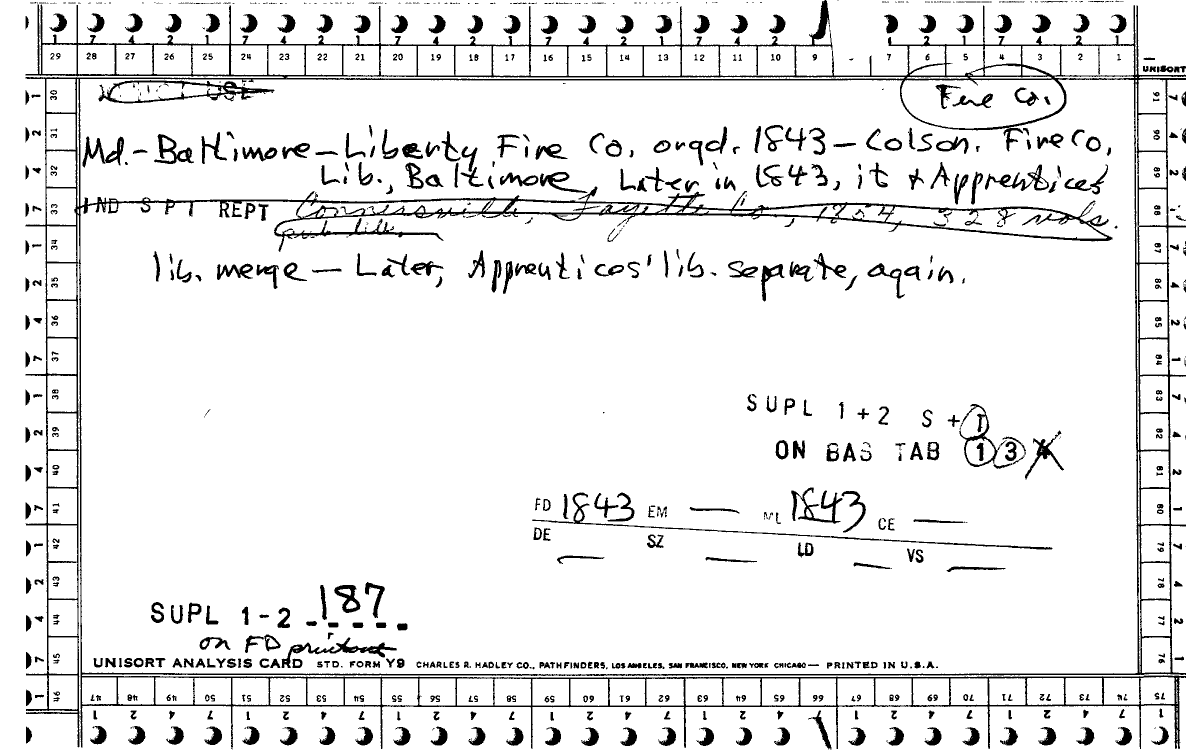 1 7 4 2 1 7 4 2 1 7 4 2 1 7 4 2 1 7 4 2 1 7 2 1 7 4 2 1
29 28 27 26 25 24 23 22 21 20 19 18 17 16 15 14 13 12 11 10 9 7 6 5 4 3 2 1
UNISORT
Fire Co.
Md.-Baltimore-Liberty Fire Co. orgd. 1843-Colson. Fire Co.
Lib., Baltimore, Later in 1843, it & Apprentices'
IND S P I REPT Connersville, Fayette Co., 1854, 328 vols.
pub lib.
lib. merge - Later, Apprentices' lib. separate, again.
SUPL 1+2 S + T
ON BAS TAB 1 3 4
FD 1843 EM — ML 1843 CE —
DE — SZ — LD — VS —
SUPL 1-2 187
on FD printout
UNISORT ANALYSIS CARD STD. FORM Y9 CHARLES R. HADLEY CO., PATHFINDERS, LOS ANGELES, SAN FRANCISCO, NEW YORK CHICAGO — PRINTED IN U.S.A.
47 48 49 50 51 52 53 54 55 56 57 58 59 60 61 62 63 64 65 66 67 68 69 70 71 72 73 74 75